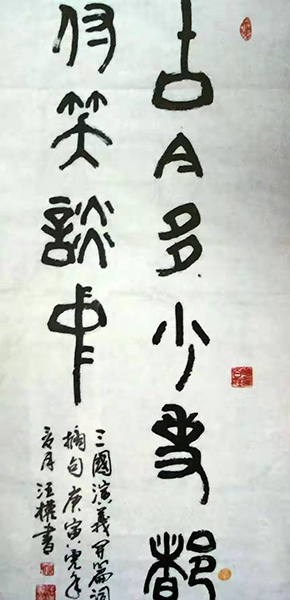 古今多少事都
付笑談中
三國演義开篇詞
摘句庚寅虎年
夏月汪書